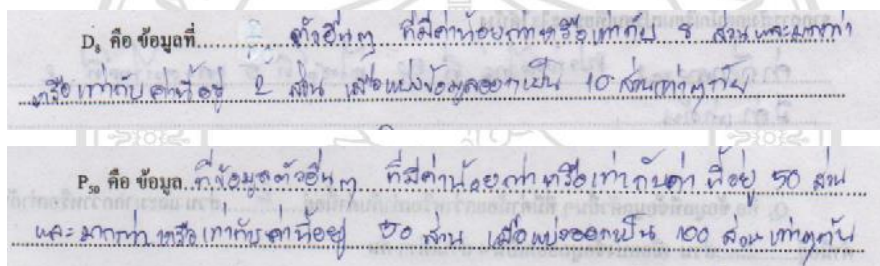 D₈ คือ ข้อมูลที่ ตัวอื่นๆ ที่มีค่าน้อยกว่าหรือเท่ากับ 8 ส่วนและมากกว่า
หรือเท่ากับค่านี้อยู่ 2 ส่วน เมื่อแบ่งข้อมูลออกเป็น 10 ส่วนเท่าๆกัน
P₅₀ คือ ข้อมูล ที่ข้อมูลตัวอื่นๆ ที่มีค่าน้อยกว่าหรือเท่ากับค่านี้อยู่ 50 ส่วน
และมากกว่าหรือเท่ากับค่านี้อยู่ 50 ส่วน เมื่อแบ่งออกเป็น 100 ส่วนเท่าๆกัน